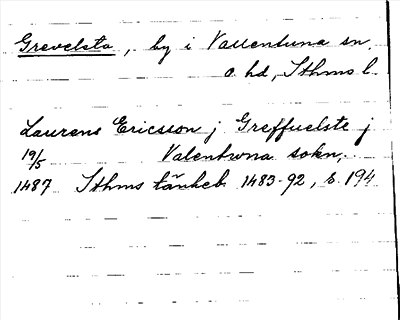 Grevelsta, by i Vallentuna sn,
o. hd, Sthms l.
Laurens Ericsson j Greffuelste j
19/5 Valentwna sokn,
1487 Sthms tänkeb. 1483-92, s. 194